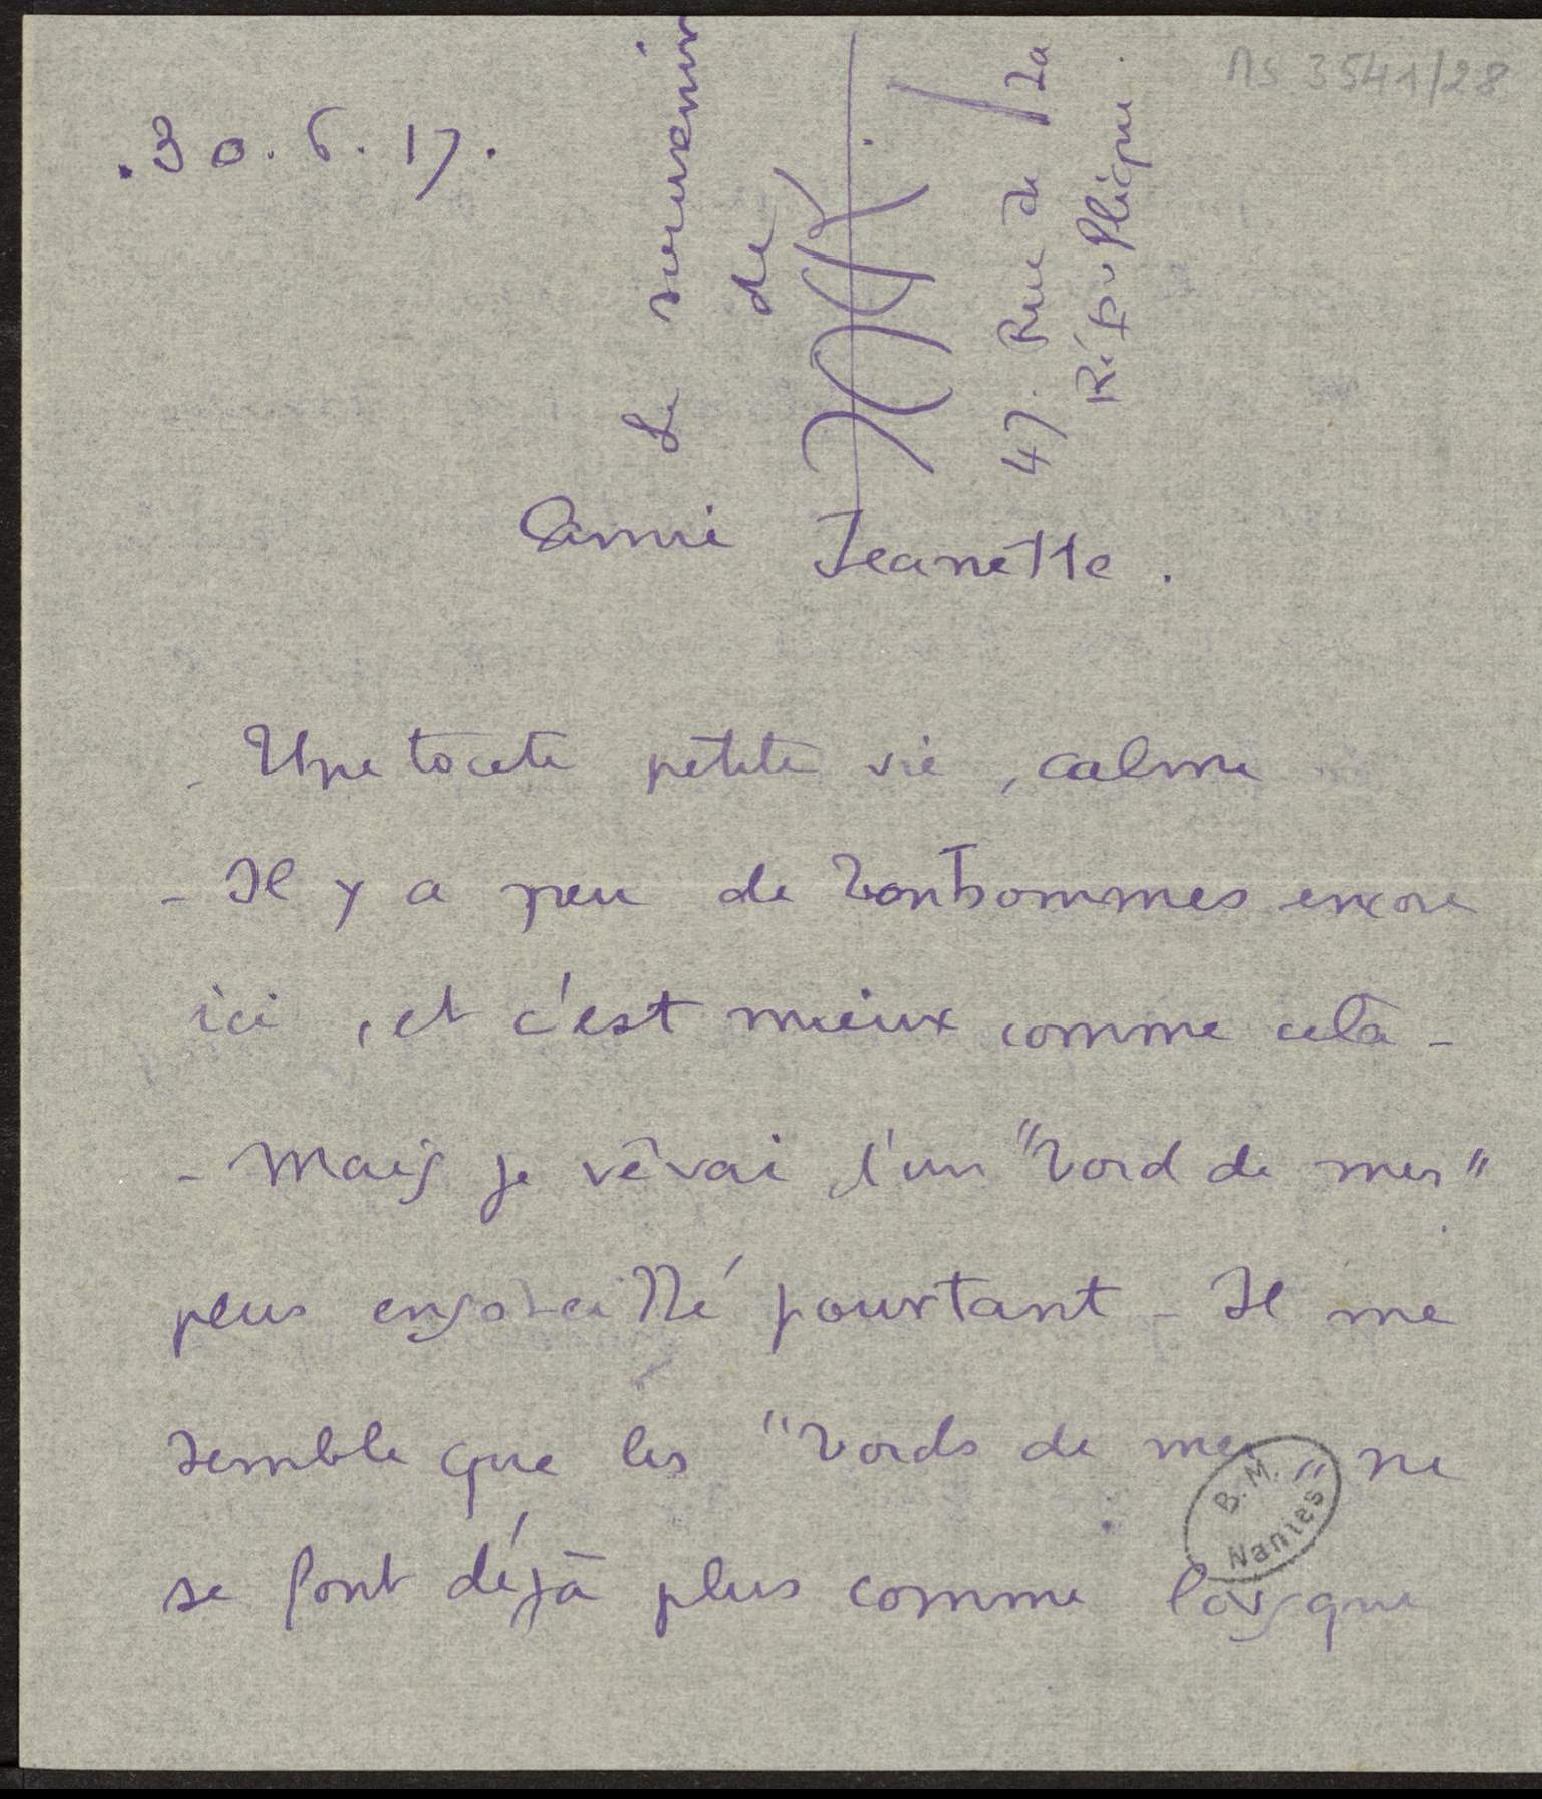 Ms 3541/28
.30.6.17.
Le souvenir
de
47. Rue de la
République.
Amie Jeanette.
- Une toute petite vie, calme
- Il y a peu de bonhommes encore
ici, et c'est mieux comme cela -
- Mais je rêvai d'un "bord de mer"
plus ensoleillé pourtant - Il me
semble que les "bords de mer" ne
se font déjà plus comme lorsque
B.M.
Nantes